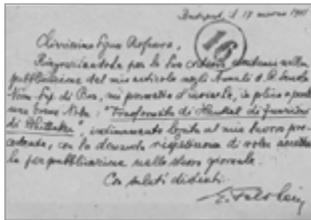 Budapest, il 17 marzo 1941
16
Chiarissimo Signor Professore,
Ringraziandola per la Sua
pubblicazione del mio articolo negli Annali d. R. Scuola
Norm. Sup. di Pisa, mi permetto d'inviarle, in plico a parte,
una breve Nota: "Trasformata di Hankel di funzioni
di Whittaker", intimamente legata al mio lavoro pre-
cedente, con la domanda rispettosa di voler accettar-
la per pubblicazione nello stesso giornale.
Con saluti distinti